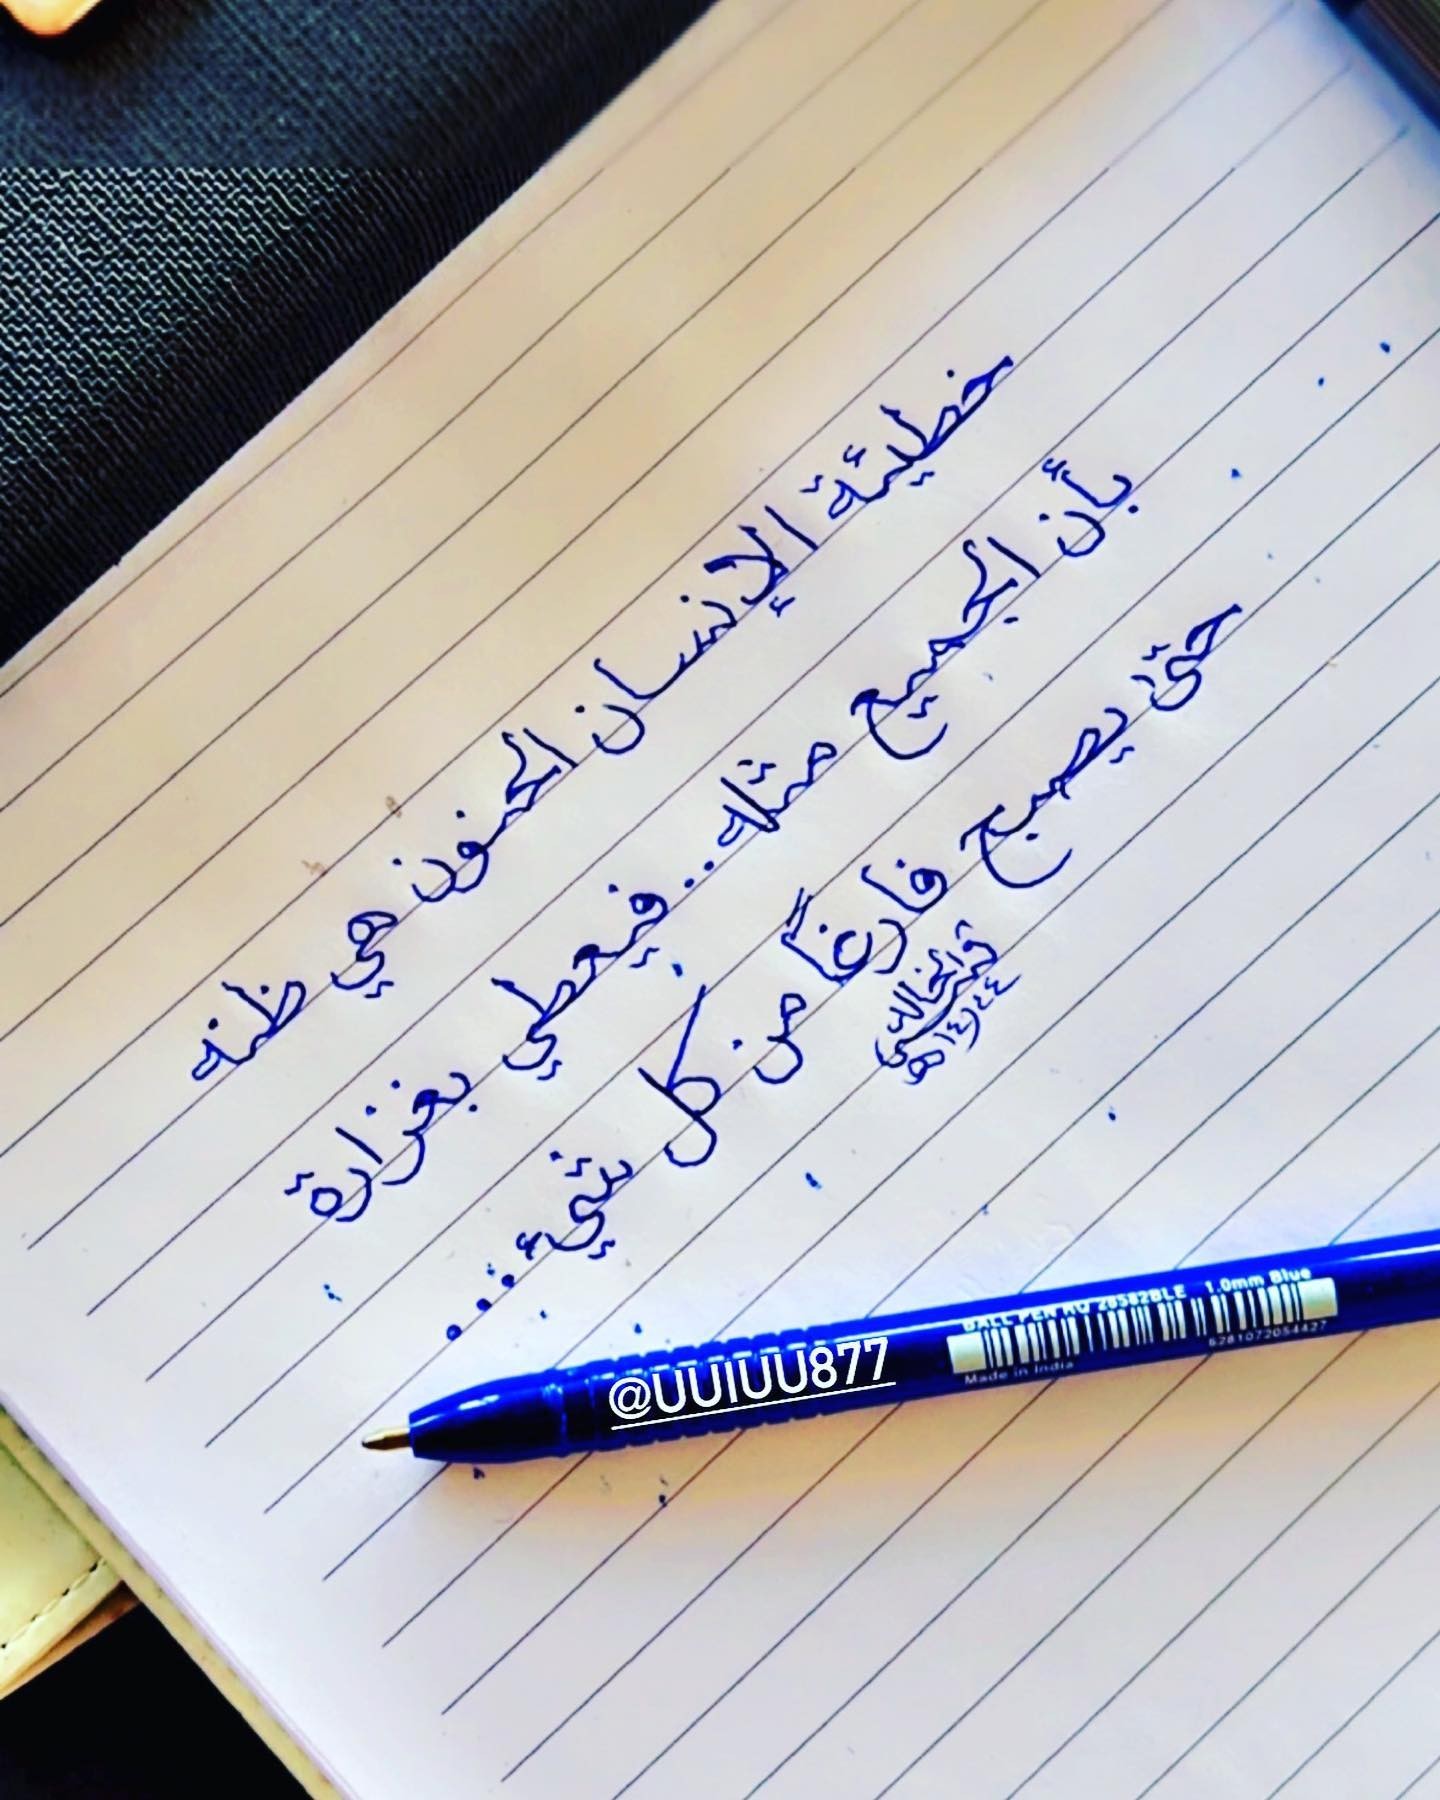 خطيئة الإنسان الحنون هي ظنه
بأن الجميع مثله.. فيعطي بغزارة
حتى يصبح فارغاً من كل شيء...
١٤٤٤هـ
BALL PEN NO 28582BLE 1.0mm Blue
@UUIUU877
Made in India
6281072054427